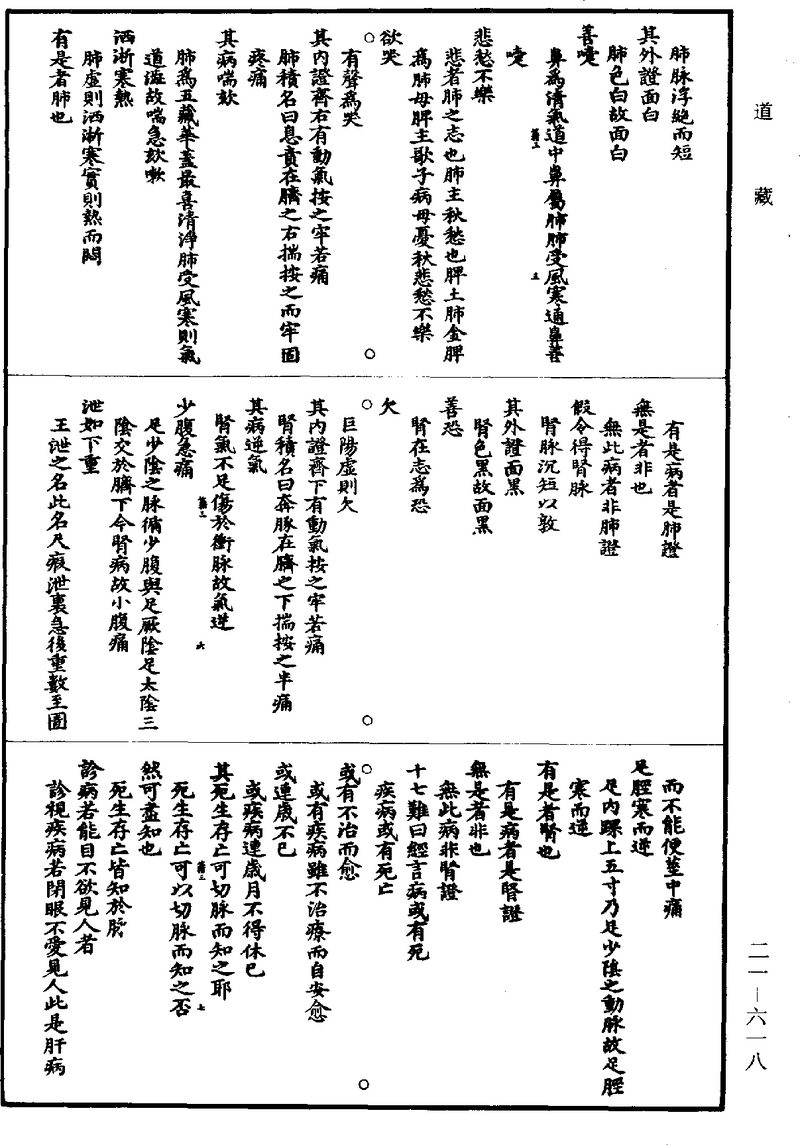 道藏
肺脉浮絶而短
其外證面白
肺色白故面白
善嚏
鼻爲清氣道中鼻屬肺肺受風寒通鼻善
嚏
悲愁不樂
悲者肺之志也肺主秋愁也脾土肺金脾
爲肺母脾主歌子病母憂秋悲愁不樂
欲哭
有聲爲哭
其内證齊右有動氣按之牢若痛
肺積名曰息賁在臍之右揣按之而牢固
疼痛
其病喘欬
肺爲五藏華蓋最喜清淨肺受風寒則氣
道澁故喘急欬嗽
洒淅寒熱
肺虚則洒淅寒實則熱而悶
有是者肺也
有是病者是肺證
無是者非也
無此病者非肺證
假令得腎脉
腎脉沉短以敦
其外證面黑
腎色黑故面黑
善恐
腎在志爲恐
欠
巨陽虚則欠
其内證齊下有動氣按之牢若痛
腎積名曰奔豚在臍之下揣按之牢痛
其病逆氣
腎氣不足傷於衝脉故氣逆
少腹急痛
足少陰之脉循少腹與足厥陰足太陰三
陰交於臍下今腎病故小腹痛
泄如下重
五泄之名此名大瘕泄裏急後重數至圊
而不能便莖中痛
足脛寒而逆
足内踝上五寸乃足少陰之動脉故足脛
寒而逆
有是者腎也
有是病者是腎證
無是者非也
無此病非腎證
十七難曰經言病或有死
疾病或有死亡
或有不治而愈
或有疾病雖不治療而自安愈
或連歲不已
或疾病連歲月不得休已
其死生存亡可切脉而知之耶
死生存亡可以切脉而知之否
然可盡知也
死生存亡皆知於脉
診病若能目不欲見人者
診視疾病若閉眼不愛見人此是肝病
二一—六一八